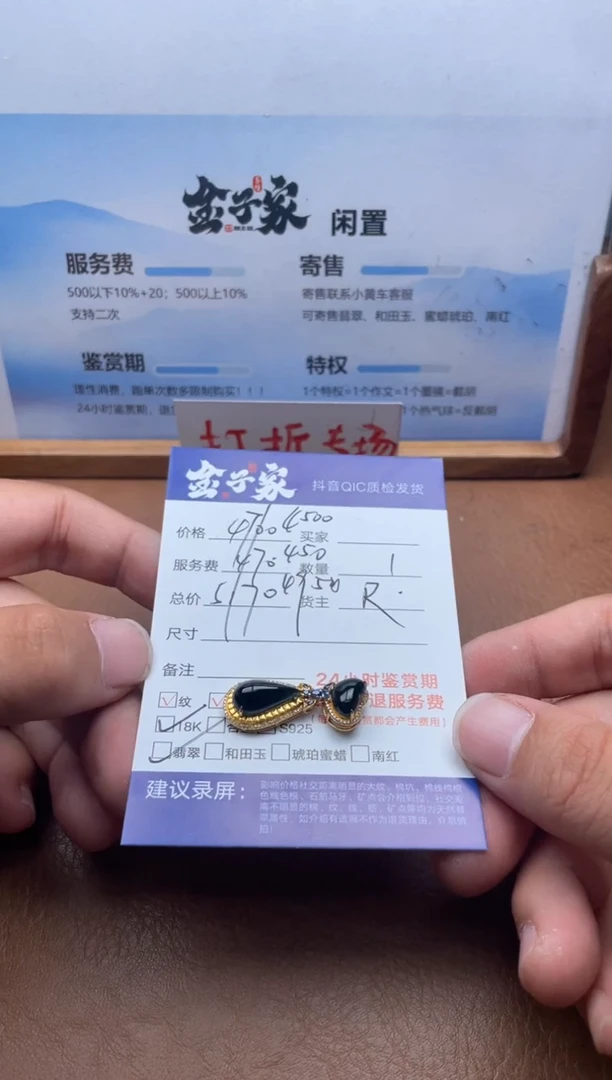 金子家 闲置
服务费
500以下10%+20; 500以上10%
支持二次
寄售
寄售联系小黄车客服
可寄售翡翠、和田玉、蜜蜡琥珀、南红
鉴赏期
理性消费，跑单次数多限制购买！！！
24小时鉴赏期，退
特权
1个特权=1个作文=1个墨镜=截胡
个热气球=反截胡
打折专场
金子家 抖音QIC质检发货
价格 4700 4500 买家
服务费 470 450 数量 1
总价 5170 4950 货主 R.
尺寸
备注
24小时鉴赏期
退服务费
都会产生费用)
纹
18K S925
翡翠 和田玉 琥珀蜜蜡 南红
建议录屏：